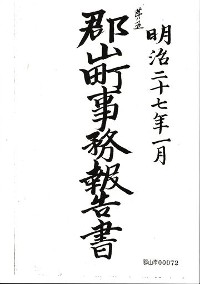 明治二十七年一月
郡山町事務報告書
郡山市00072